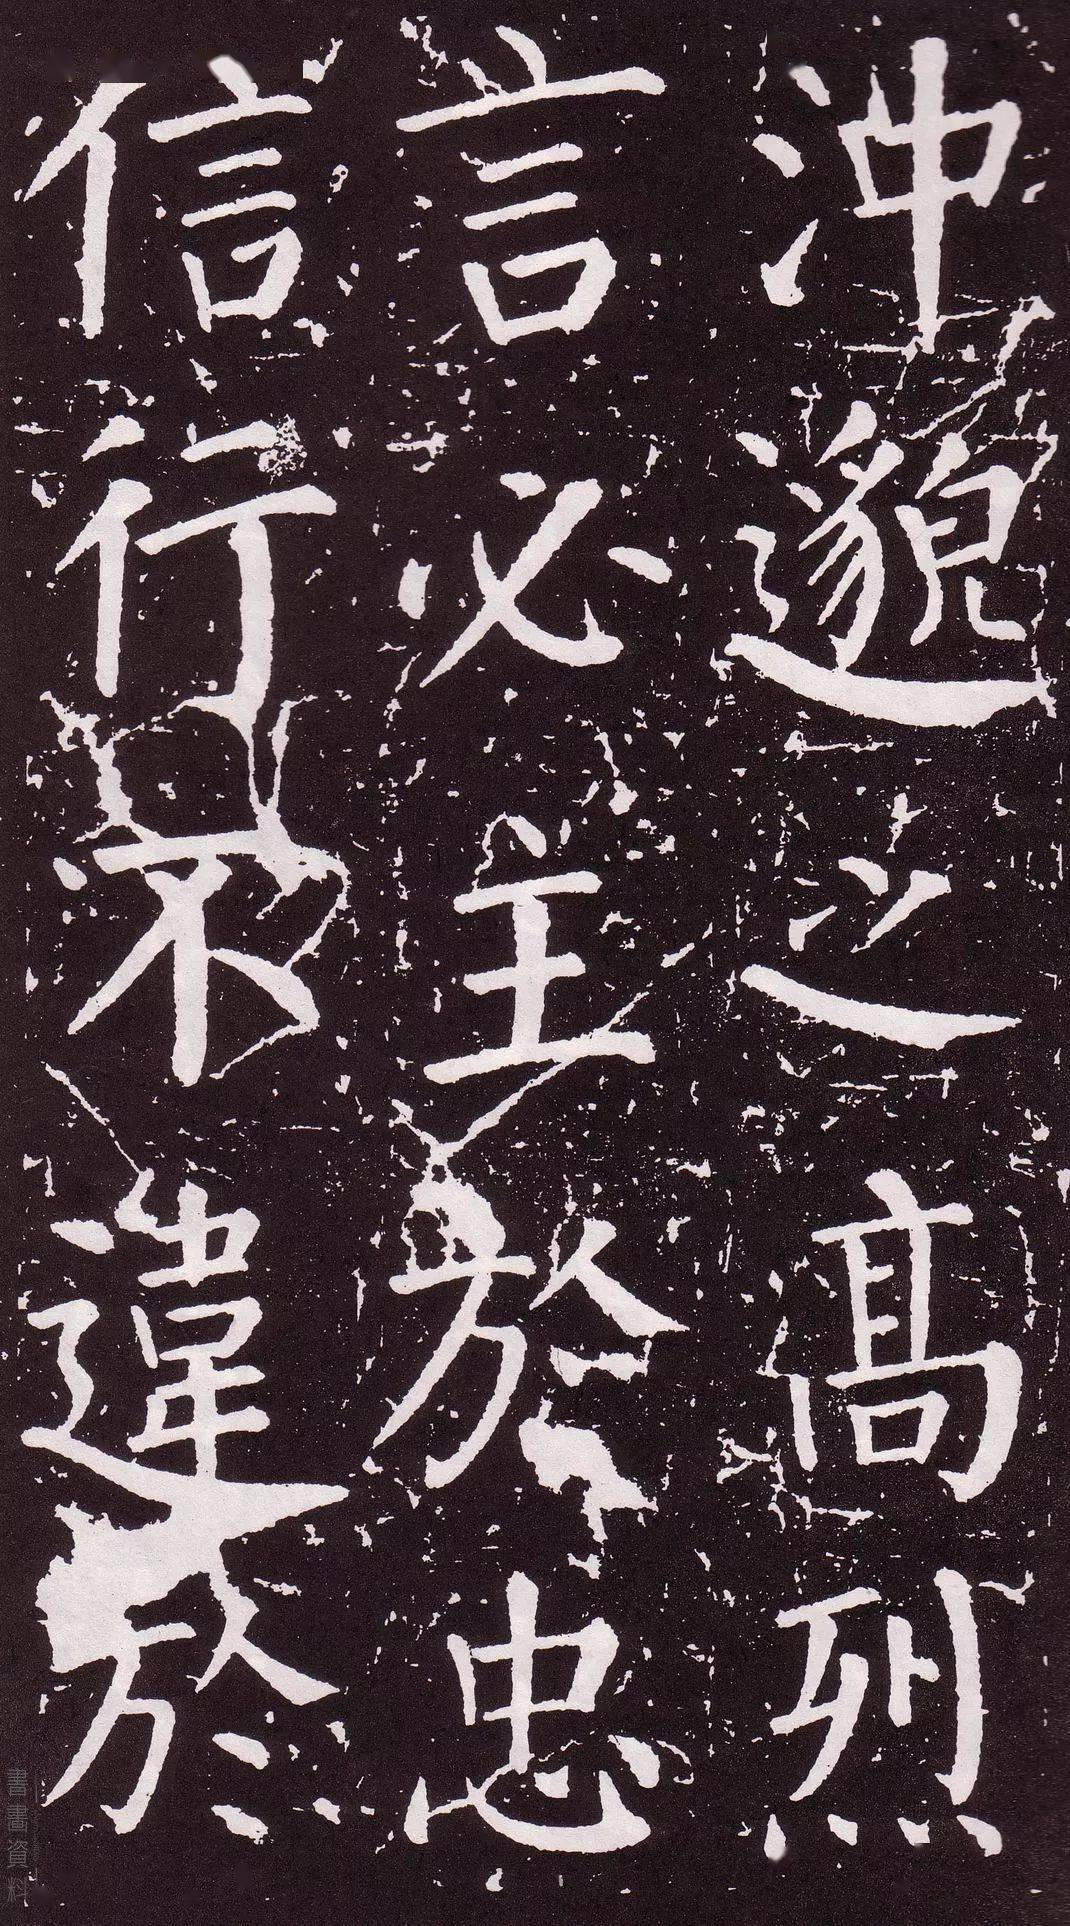 冲邈之高烈
言必主於忠
信行不違於
書畫資料